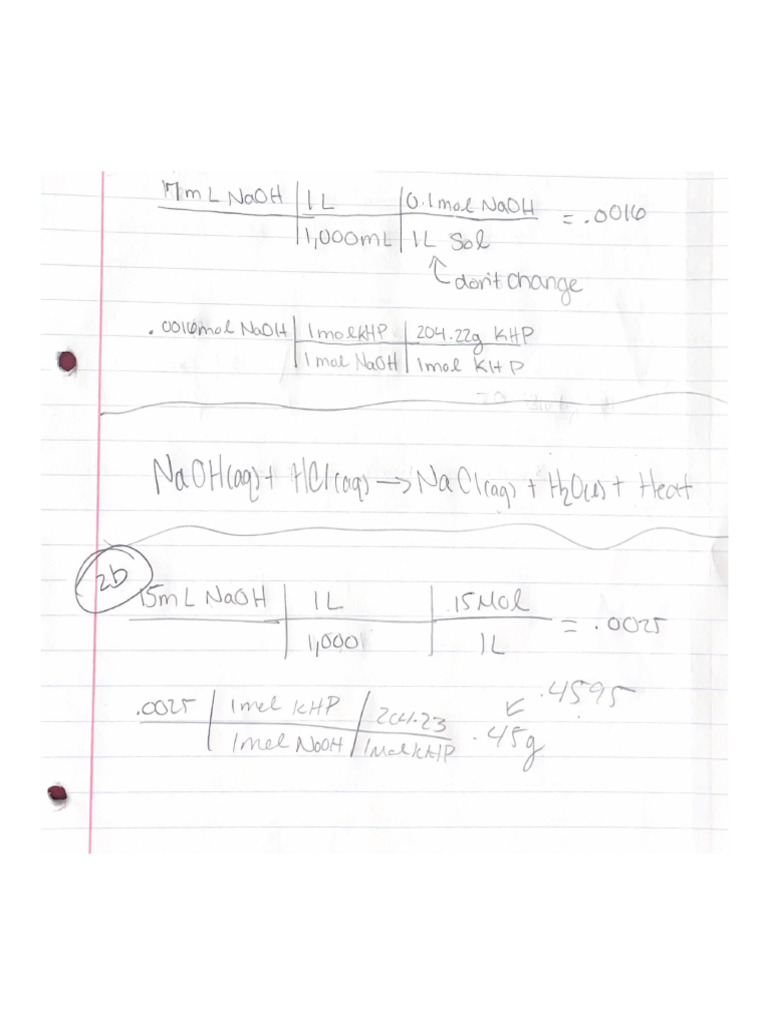 17mL NaOH | 1L | 0.1mol NaOH = .0016
1,000mL | 1L Sol
don't change
.0016mol NaOH | 1molKHP | 204.22g KHP
1mol NaOH | 1mol KHP
NaOH(aq) + HCl(aq) → NaCl(aq) + H₂O(l) + Heat
2b
15mL NaOH | 1L | .15Mol = .0025
1,000 | 1L
.0025 | 1mol KHP | 204.23 .45g ← .4595
1mol NaOH | 1molKHP